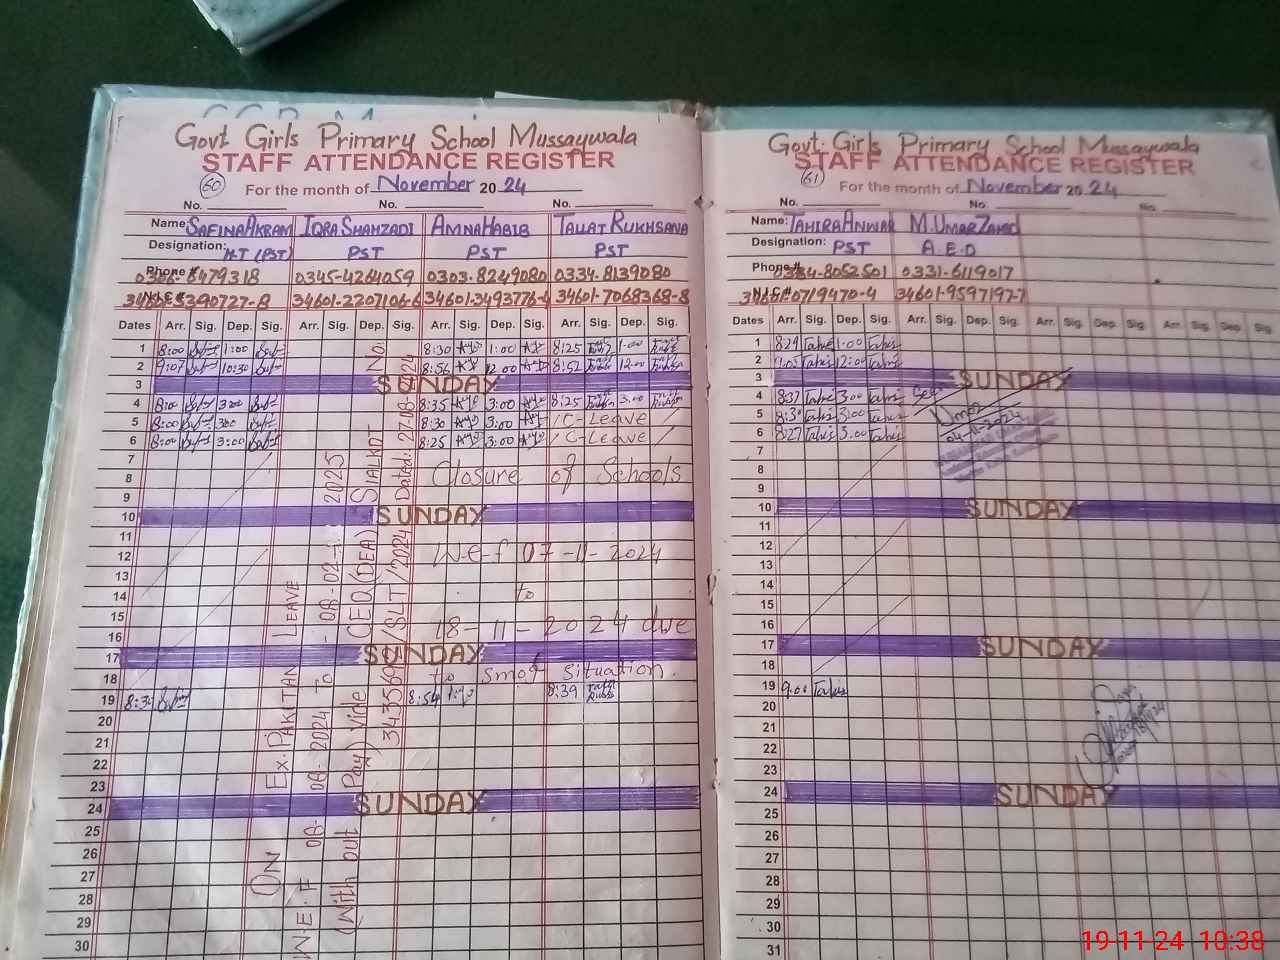 Govt Girls Primary School Mussaywala
STAFF ATTENDANCE REGISTER
60 For the month of November 2024
No. No. No.
Name: SAFINA AKRAM IQRA SHAHZADI AMNA HABIB TALLAT RUKHSANA
Designation: H.T (PST) PST PST PST
Phone # 6479318 0345-4264059 0303-8249080 0334-8139080
390727-8 34601-2207106-6 34601-3493776-4 34601-7068368-8
Dates Arr. Sig. Dep. Sig. Arr. Sig. Dep. Sig. Arr. Sig. Dep. Sig. Arr. Sig. Dep. Sig.
1 8:00 1:00 8:30 1:00 8:25 1:00
2 9:07 10:30 8:56 12:00 8:52 12:00
3 SUNDAY
4 8:00 3:00 8:35 3:00 8:25 3:00
5 8:00 3:00 8:30 3:00 C-Leave
6 8:00 3:00 8:25 3:00 C-Leave
7
8 Closure of Schools
9
10 SUNDAY
11
12 W-e-f 07-11-2024
13
14 to
15
16 18-11-2024 due
17 SUNDAY
18 to smog situation.
19 8:54 8:39
20
21
22
23
24 SUNDAY
25
26
27
28
29
30
ON Ex-PAKITAN LEAVE
W.E.F 08-08-2024 To -08-02-2025
(With out Pay) vide CEO (DEA) SIALKOT No:
/SLT/2024 Dated: 27-08-2024
Govt. Girls Primary School Mussaywala
STAFF ATTENDANCE REGISTER
61 For the month of November 2024
No. No. No.
Name: TAHIRA ANWAR M. UMAR ZAHID
Designation: PST A.E.O
Phone # 0334-8052501 0331-6119017
N.I.C # 0719470-4 34601-9597197-7
Dates Arr. Sig. Dep. Sig. Arr. Sig. Dep. Sig. Arr. Sig. Dep. Sig. Arr. Sig. Dep. Sig.
1 8:29 1:00
2 9:05 12:00
3 SUNDAY
4 8:37 3:00 Seen
5 8:30 3:00 Umar
6 8:27 3:00 04-11-2024
7
8
9
10 SUNDAY
11
12
13
14
15
16
17 SUNDAY
18
19 9:00
20
21
22
23
24 SUNDAY
25
26
27
28
29
30
31
19-11-24 10:38